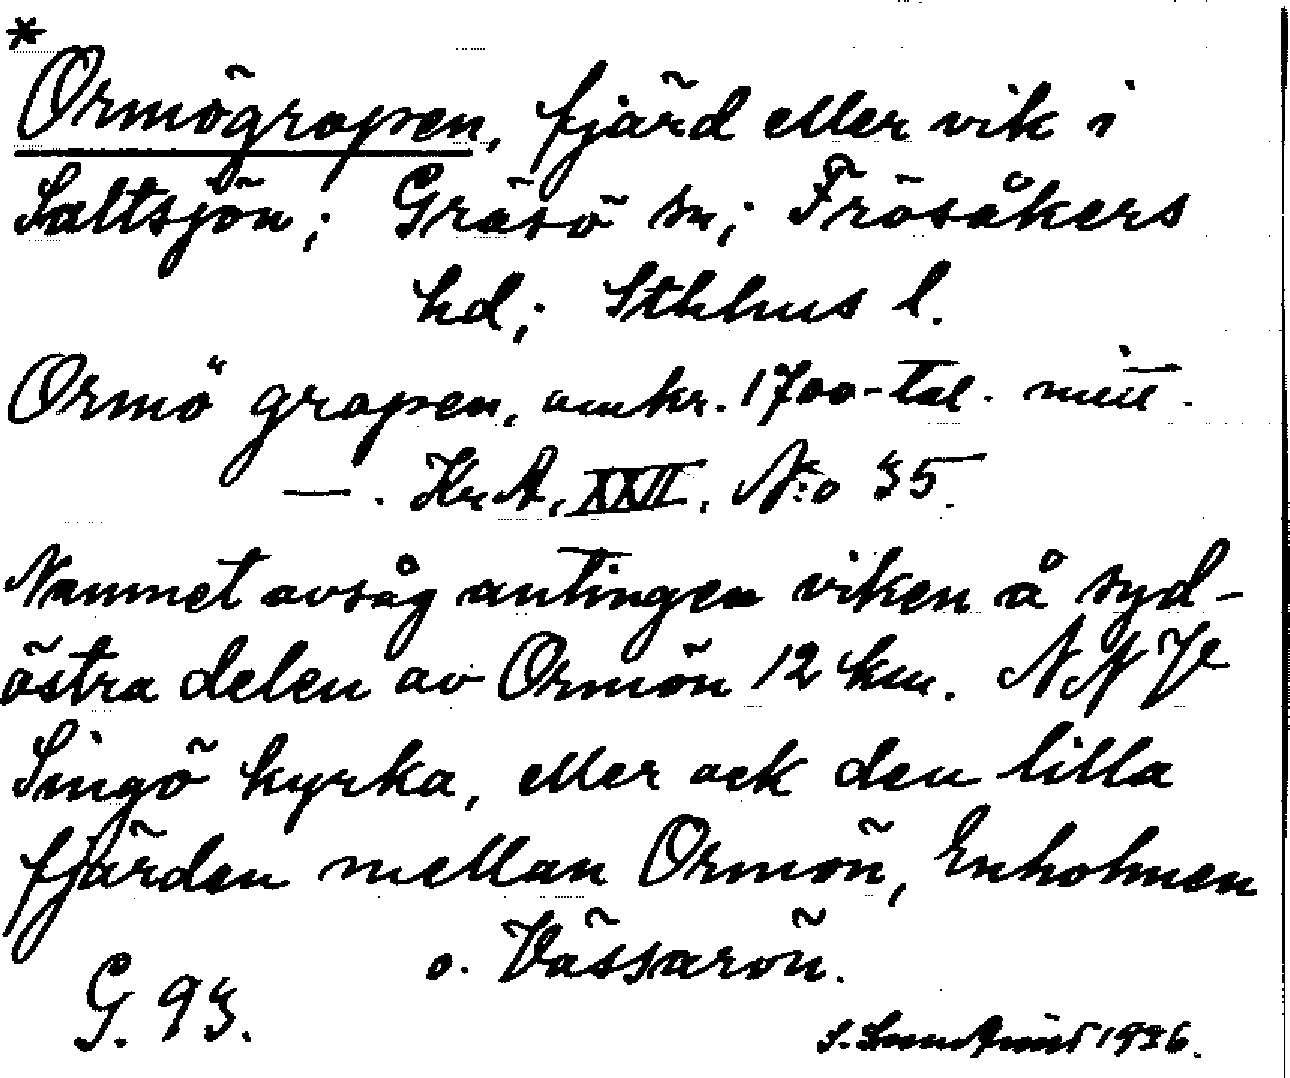 *
Ormögropen, fjärd eller vik i
Saltsjön; Gräsö sn; Frösåkers
hd; Sthlms l.
Ormö gropen, omkr. 1700-tal. mitt.
—. Kr.A. XXII. N:o 35.
Namnet avsåg antingen viken å syd-
östra delen av Ormön 12 km. NNV
Singö kyrka, eller ock den lilla
fjärden mellan Ormön, Enholmen
o. Vässarön.
G. 93.
1936.